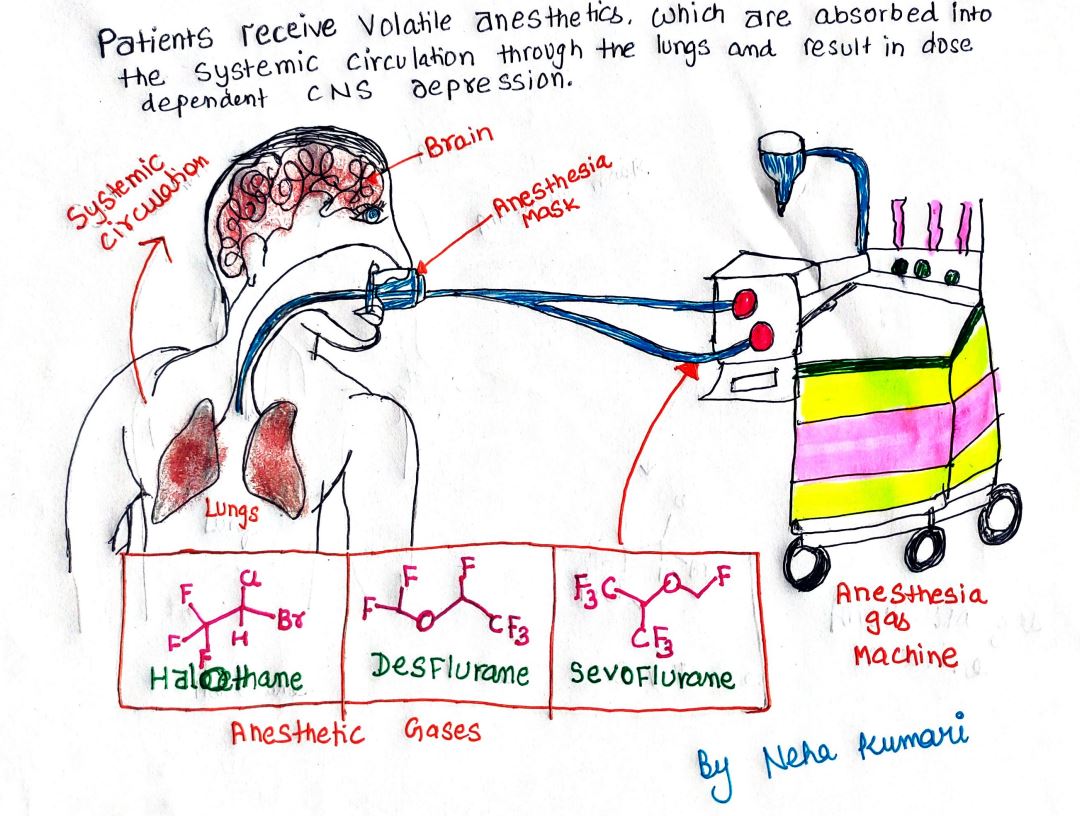 Patients receive Volatile anesthetics, which are absorbed into
the systemic circulation through the lungs and result in dose
dependent CNS depression.
Systemic
circulation
Brain
Anesthesia
Mask
Lungs
F
Cl
F
Br
H
F
Halothane
F
F
F
O
CF3
Desflurane
F3C
O
F
CF3
Sevoflurane
Anesthetic Gases
Anesthesia
gas
Machine
By Neha Kumari